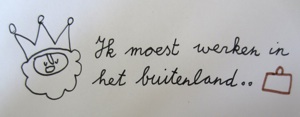 Ik moest werken in
het buitenland..